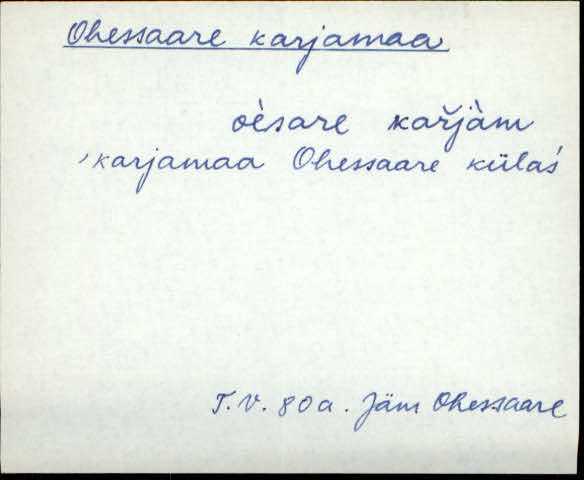 Ohessaare karjamaa
oèsare kařjàm
'karjamaa Ohessaare külas'
T.V. 80a. Jäm Ohessaare